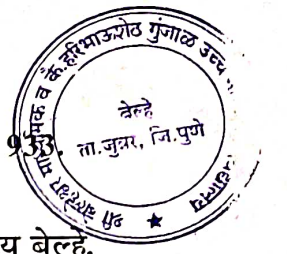 श्री बोरेश्वर माध्यमिक व कै. हरिभाऊशेठ गुंजाळ उच्च
बेल्हे
ता.जुन्नर, जि.पुणे
933.
य बेल्हे.